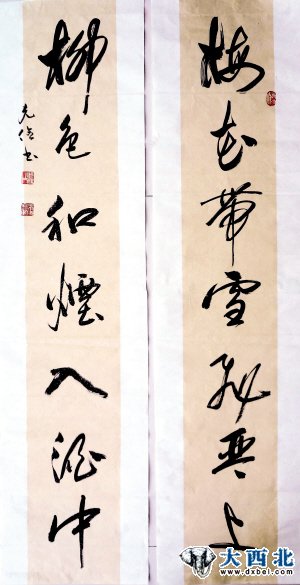 梅花帶雪飛琴上
柳色和煙入酒中
大西北
www.dxbei.com